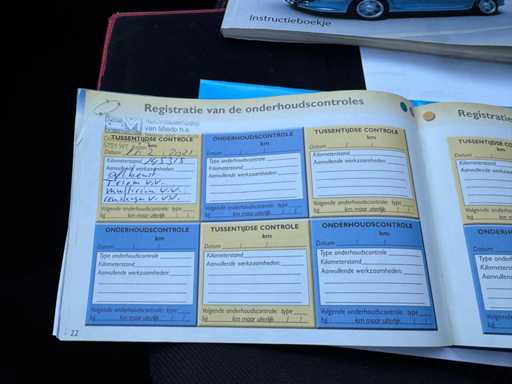 Instructieboekje
Registratie van de onderhoudscontroles
Registratie
TUSSENTIJDSE CONTROLE
km
Datum 2021
Kilometerstand 145315
Aanvullende werkzaamheden:
V.V.
V.V.
V.V.
Volgende controle: type
kg km maar uiterlijk
ONDERHOUDSCONTROLE
km
Datum / /
Type onderhoudscontrole
Kilometerstand
Aanvullende werkzaamheden:
Volgende onderhoudscontrole: type
kg km maar uiterlijk / /
TUSSENTIJDSE CONTROLE
km
Datum / /
Kilometerstand
Aanvullende werkzaamheden:
Volgende onderhoudscontrole: type
kg km maar uiterlijk / /
ONDERHOUDSCONTROLE
km
Datum / /
Type onderhoudscontrole
Kilometerstand
Aanvullende werkzaamheden:
Volgende onderhoudscontrole: type
kg km maar uiterlijk / /
TUSSENTIJDSE CONTROLE
km
Datum / /
Kilometerstand
Aanvullende werkzaamheden:
Volgende onderhoudscontrole: type
kg km maar uiterlijk / /
ONDERHOUDSCONTROLE
km
Datum / /
Type onderhoudscontrole
Kilometerstand
Aanvullende werkzaamheden:
Volgende onderhoudscontrole: type
kg km maar uiterlijk / /
TUSSEN
Datum
Kilometerst
Aanvullende
Volgende
kg
ONDER
Datum
Type onder
Kilometers
Aanvullen
Volgende
kg
22